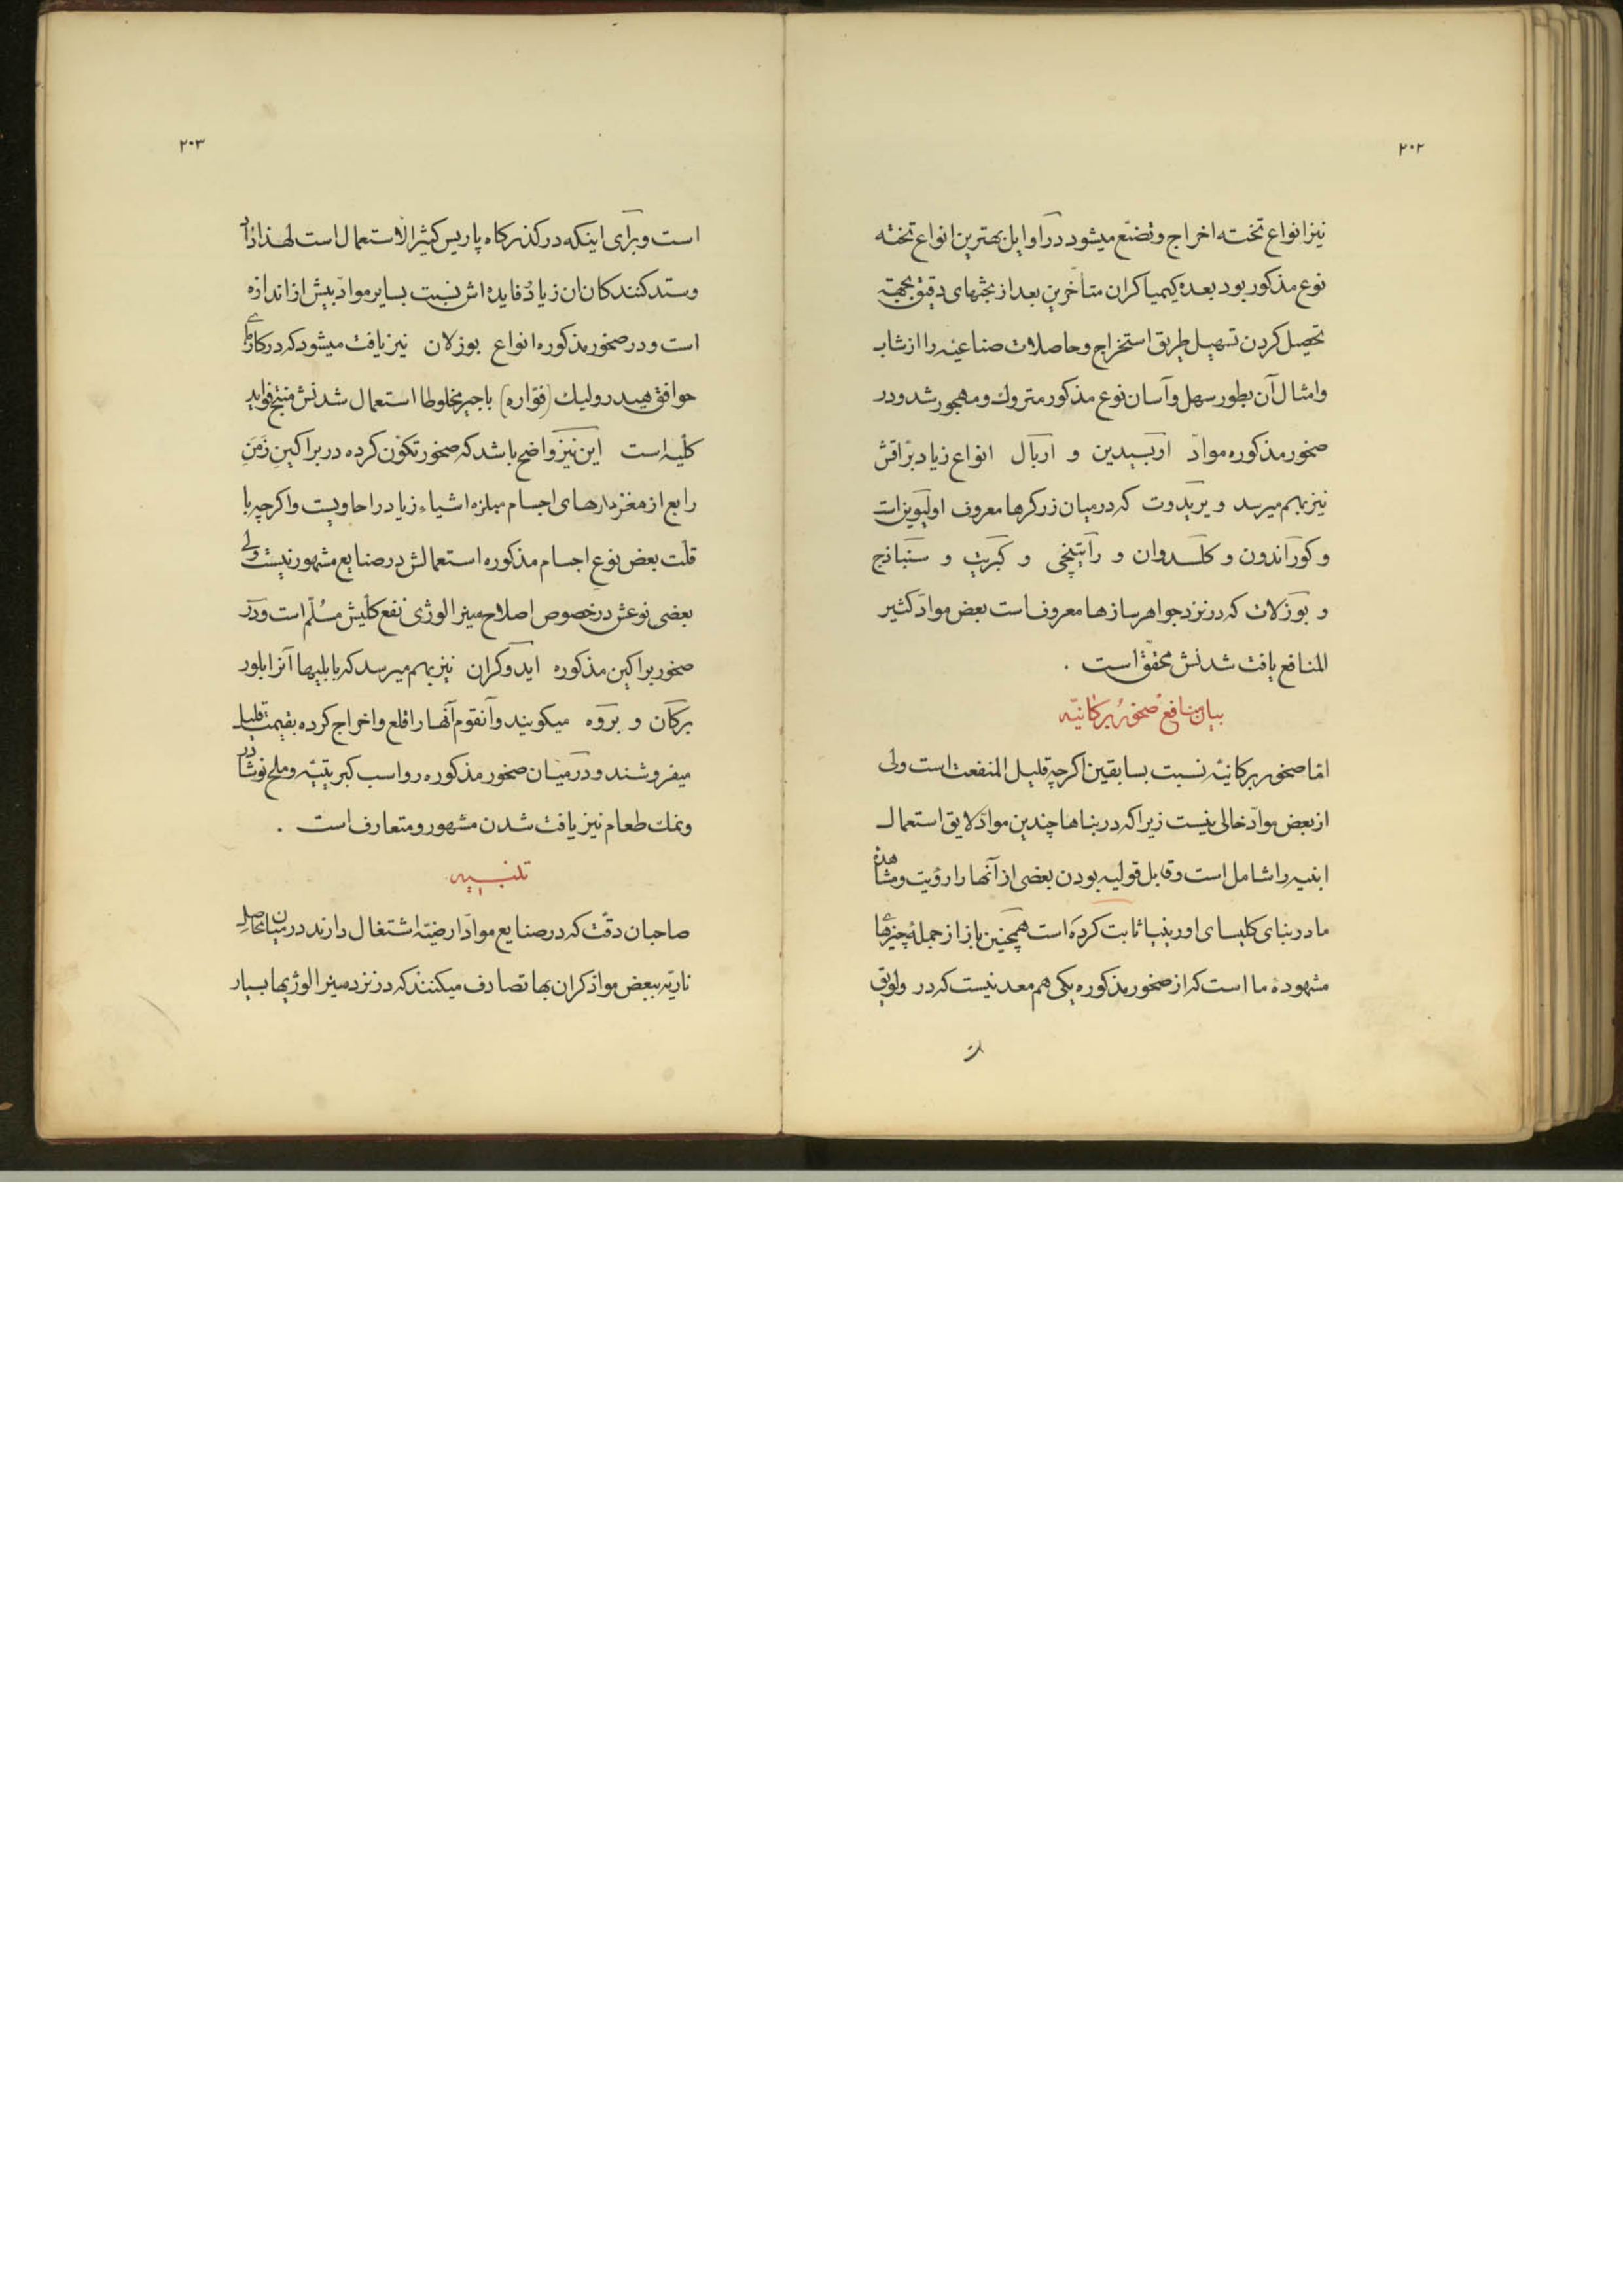 ۲۰۲
نیز انواع تخته اخراج و تصنّع میشود در اوایل بهترین انواع تخته
نوع مذکور بود بعده کیمیاکران متأخّرین بعد از بحثهای دقیق بجهة
تحصیل کردن تسهیل طریق استخراج و حاصلات صناعیّه را از شاب
و امثال آن بطور سهل و آسان نوع مذکور متروك و مهجور شد و در
صخور مذکوره موادّ اوبسیدین و اریال انواع زیاد برّاقش
نیز بهم میرسد و یریدوت که در میان زرکرها معروف اولیوین است
و کوراندون و کلسدوان و راتینجی و کبریت و سنباذج
و بوزلات که در نزد جواهرسازها معروف است بعض موادّ کثیر
المنافع یافت شدنش محقّق است .
بیان منافع صخور برکانیّه
امّا صخور برکانیّه نسبت بسابقین اکرچه قلیل المنفعت است ولی
از بعض موادّ خالی نیست زیرا که در بناها چندین موادّ لایق استعمال
ابنیه را شامل است و قابل قولیه بودن بعضی از آنها را رؤیت و مشاهدهٔ
ما در بنای کلیسای اورینیا ثابت کرده است همچنین باز از جملهٔ چیزهای
مشهودهٔ ما است که از صخور مذکوره یکی هم معدنیست که در ولویق
۲۰۳
است و برای اینکه در کذرکاه پاریس کثیر الاستعمال است لهذا داد
و ستد کنندکان ان زیاد و فایده اش نسبت بسایر موادّ بیش از اندازه
است و در صخور مذکوره انواع بوزلان نیز یافت میشود که در کارهای
حوافق هیدرولیك (فوّاره) با جیر مخلوطا استعمال شدنش منتج فواید
کلّیّه است این نیز واضح باشد که صخور تکوّن کرده در براکین زمن
رابع از مغزدارهای اجسام مبلزه اشیاء زیاد را حاویست و اکرچه با
قلّت بعض نوع اجسام مذکوره استعمالش در صنایع مشهور نیست ولی
بعضی نوعش در خصوص اصلاح مینرالوژی نفع کلّیش مسلّم است و در
صخور براکین مذکوره ایدوکران نیز بهم میرسد که بابلیها آنرا بلور
برکان و بروه میکویند و آنقوم آنها را قلع و اخراج کرده بقیمت قلیل
میفروشند و در میان صخور مذکوره رواسب کبریتیّه و ملح نوشادر
و نمك طعام نیز یافت شدن مشهور و متعارف است .
تنبیه
صاحبان دقّت که در صنایع موادّ ارضیّه اشتغال دارند در میان حاصل
ناریّه ببعض موادّ کران بها تصادف میکنند که در نزد مینرالوژیها بسیار